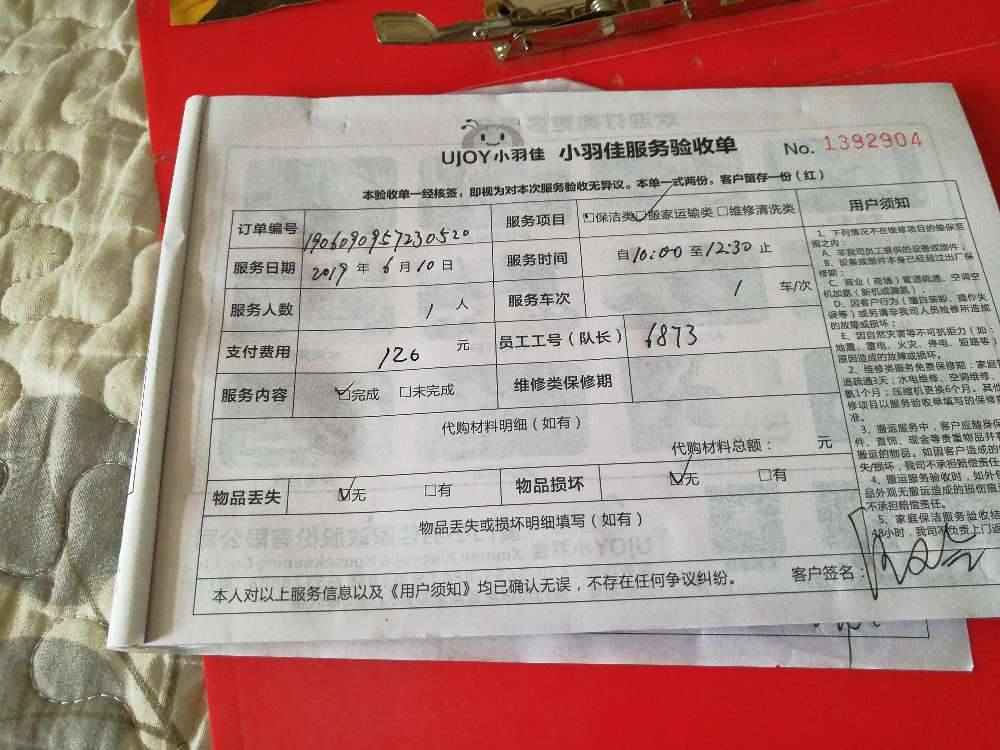 UJOY小羽佳 小羽佳服务验收单 No. 1392904
本验收单一经核签，即视为对本次服务验收无异议。本单一式两份，客户留存一份（红）
订单编号 190609095723052​0 服务项目 保洁类 搬家运输类 维修清洗类
服务日期 2019 年 6 月 10 日 服务时间 自 10:00 至 12:30 止
服务人数 1 人 服务车次 1 车/次
支付费用 126 元 员工工号（队长） 6873
服务内容 完成 未完成 维修类保修期
代购材料明细（如有）
代购材料总额： 元
物品丢失 无 有 物品损坏 无 有
物品丢失或损坏明细填写（如有）
本人对以上服务信息以及《用户须知》均已确认无误，不存在任何争议纠纷。 客户签名：
用户须知
1、下列情况不在维修项目的维保范
围之内：
A、非我司员工提供的设备或部件；
B、设备或部件本身已经超过出厂保
修期；
C、商业（商铺）管道疏通、空调空
机加氨（新机或漏氨）
D、因客户行为（擅自装卸、操作失
误等）或另请非我司人员检修所造成
的故障或损坏；
E、因自然灾害等不可抗拒力（如：
地震、雷电、火灾、停电、短路等）
原因造成的故障或损坏。
2、维修类服务免费保修期：家庭管
道疏通3天；水电维修、空调维修、
氨1个月；压缩机更换6个月。其他
修项目以服务验收单填写的保修期
准。
3、搬运服务中，客户应随身保
件、首饰、现金等贵重物品并
搬运的物品。如因客户造成的
失/损坏，我司不承担赔偿责任
4、搬运服务验收时，如外包
品外观无搬运造成的损伤痕
不承担赔偿责任。
5、家庭保洁服务验收结
48小时，我司不负责上门返